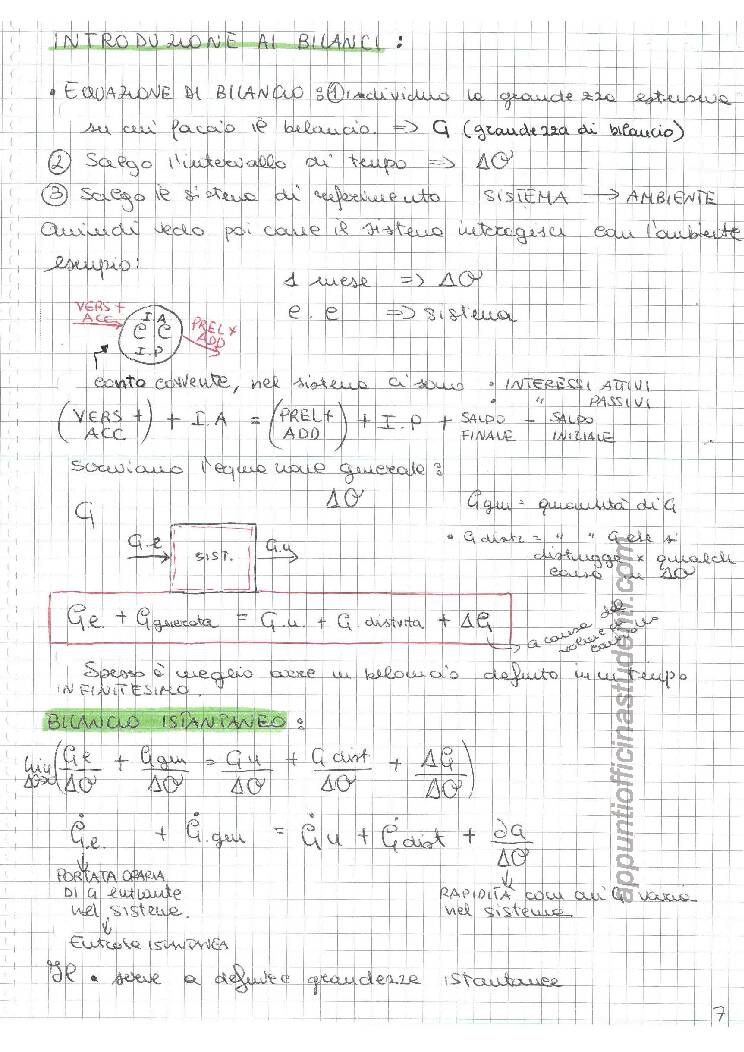 INTRODUZIONE AI BILANCI :
• EQUAZIONE DI BILANCIO : ① individuo la grandezza estensiva
su cui faccio il bilancio. => G (grandezza di bilancio)
② Scelgo l'intervallo di tempo => Δθ
③ Scelgo il sistema di riferimento SISTEMA → AMBIENTE
Quindi vedo poi come il sistema interagisce con l'ambiente
esempio:
1 mese => Δθ
c.c => sistema
VERS + ACC
I.A
C C
I.P
PREL + ADD
conto corrente, nel sistema ci sono • INTERESSI ATTIVI
• " PASSIVI
(VERS + ACC) + I.A = (PREL + ADD) + I.P + SALDO FINALE - SALDO INIZIALE
Scriviamo l'equazione generale :
G Δθ G gen = quantità di G
G.e SIST. G.u
• G dist = " " G che si
distrugge x qualche
causa in Δθ
Ge + Ggenerata = G.u + G. distrutta + ΔG
a causa del
Spesso è meglio avere un bilancio definito in un tempo
INFINITESIMO.
BILANCIO ISTANTANEO :
lim Δθ→0 (Ge/Δθ + Ggen/Δθ = Gu/Δθ + G dist/Δθ + ΔG/Δθ)
Ġ.e + Ġ.gen = Ġu + Ġdist + ∂G/Δθ
PORTATA ORARIA
DI G entrante
nel sistema.
RAPIDITÀ con cui G varia
nel sistema
Entrata ISTANTANEA
• serve a definire grandezze istantanee
appuntiofficinastudenti.com
7